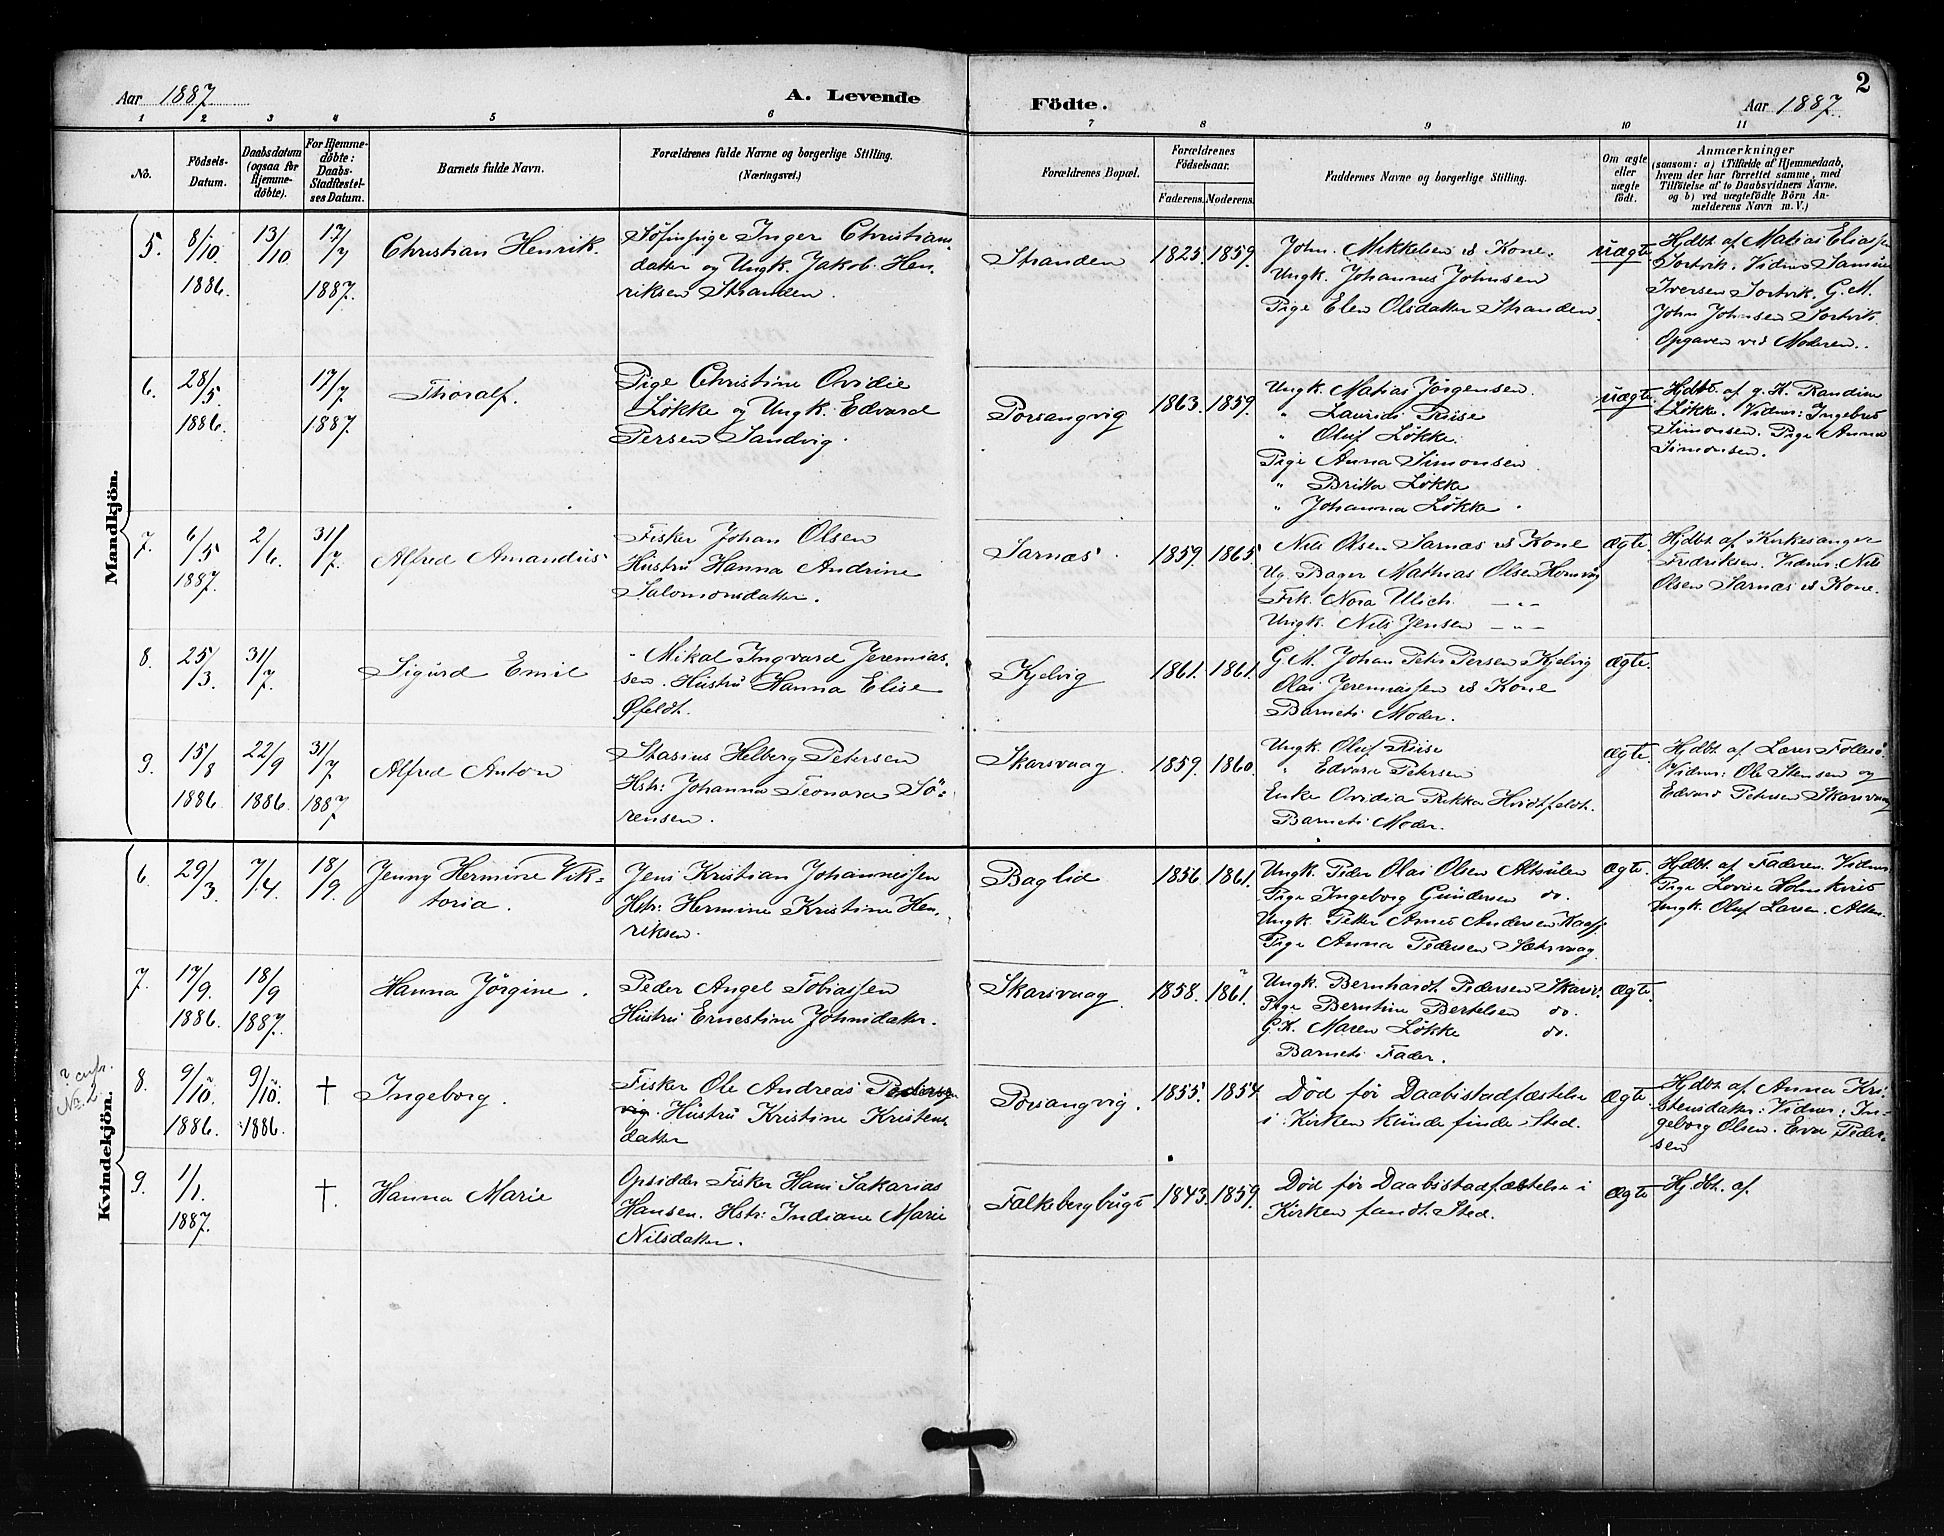 Aar 1887. A. Levende Födte. Aar 1887. 2
1 2 3 4 5 6 7 8 9 10 11
No.
Födsels-
Datum.
Daabsdatum
(ogsaa for
Hjemme-
döbte).
For Hjemme-
döbte:
Daabs-
Stadfæstel-
ses Datum.
Barnets fulde Navn.
Forældrenes fulde Navne og borgerlige Stilling.
(Næringsvei.)
Forældrenes Bopæl.
Forældrenes
Födselsaar.
Faderens. Moderens.
Faddernes Navne og borgerlige Stilling.
Om ægte
eller
uægte
födt.
Anmærkninger
(saasom: a) i Tilfælde af Hjemmedaab,
hvem der har forrettet samme, med
Tilföielse af to Daabsvidners Navne.
og b) ved uægtefödte Börn An-
melderens Navn m. V.)
Mandkjön.
5. 8/10 1886. 13/10 17/7 1887.
Christian Henrik.
Inger Christians
datter og Ungk. Jakob Hen
riksen Stranden.
Stranden 1825. 1859.
John. Mikkelsen & Kone.
Ungk. Johannes Johnsen
Pige Elen Olsdatter Stranden.
uægte
Hjdbt. af Matias Eliassen
Sortvik. Vidner Samuel
Iversen Sortvik. G.M.
John Johnsen Sortvik.
Opgaven ved Moderen.
6. 28/5 1886. 17/7 1887.
Thoralf.
Pige Christine Ovidie
Løkke og Ungk. Edvard
Persen Sandvig.
Porsangvig 1863. 1859.
Ungk. Matias Jørgensen.
" Laurids Riise
" Oluf Løkke.
Pige Anna Simonsen
" Britta Løkke
" Johanna Løkke.
uægte
Hjdbt. af g. K. Randine
Løkke. Vidner: Ingebret
Simonsen. Pige Anna
Simonsen.
7. 6/5 1887. 2/6. 31/7.
Alfred Amandus
Fisker Johan Olsen
Hustru Hanna Andrine
Salomonsdatter.
Sarnæs. 1859. 1865.
Nils Olsen Sarnæs & Kone
Ug. Bager Mathias Olsen Honvåg
Frk. Nora Ulich. — " —
Ungk. Nils Jensen — " —
ægte.
Hjdbt. af Kirkesanger
Fredriksen. Vidner: Nils
Olsen Sarnæs & Kone.
8. 25/3. 31/7.
Sigurd Emil
" Mikal Ingvard Jeremias-
sen. Hustru Hanna Elise
Øfeldt.
Kjelvig 1861. 1861.
G.M. Johan Peter Persen Kjelvig
Olai Jeremiassen & Kone
Barnets Moder.
ægte.
9. 15/8 1886. 22/9 1886. 31/7 1887
Alfred Anton
Stasius Helberg Petersen
Hstr: Johanna Leonora Sö-
rensen.
Skarsvaag. 1859. 1860.
Ungk. Oluf Riise
" Edvard Petersen
Enke Ovidia Rikka Hvidtfeldt.
Barnets Moder.
ægte.
Hjdbt. af Lærer Follesö.
Vidner: Ole Stensen og
Edvard Petersen Skarsvaag
Kvindekjön.
6. 29/3. 7/4. 18/9.
Jenny Hermine Vik-
toria.
Jens Kristian Johannessen
Hstr: Hermine Kristine Hen-
riksen.
Baglid 1856. 1861.
Ungk. Peder Olai Olsen Altsulen
Pige Ingeborg Gundersen do.
Ungk. Petter Arnet Andersen
Pige Anna Pedersen
ægte.
Hjdbt. af Faderen. Vidner
Pige Lovise Holmkvist
Ungk. Oluf Larsen. Alten.
7. 17/9. 1886. 18/9 1887.
Hanna Jörgine.
Peder Angel Tobiassen
Hustru Ernestine Johnsdatter.
Skarsvaag. 1858. 1861.
Ungk. Bernhardt Pedersen Skarsv.
Pige Berntine Bertelsen do.
G.K. Maren Løkke do.
Barnets Fader.
ægte.
? cnfr.
No. 2
8. 9/10. 1886. 9/10. 1886. †
Ingeborg.
Fisker Ole Andreas
Hustru Kristine Kristens-
datter
Porsangvig. 1855. 1854
Död før Daabsstadfæstelse
i Kirken kunde finde Sted.
ægte
Hjdbt. af Anna Kri-
stensdatter: Vidner: In-
geborg Olsen. Eva Peder-
sen
9. 1/1. 1887. †.
Hanna Marie
Opsidder Fisker Hans Sakarias
Hansen. Hstr: Indiane Marie
Nilsdatter.
Falkebergbugt 1843. 1859.
Död før Daabsstadfæstelse i
Kirken fandt Sted.
ægte
Hj.dbt. af.